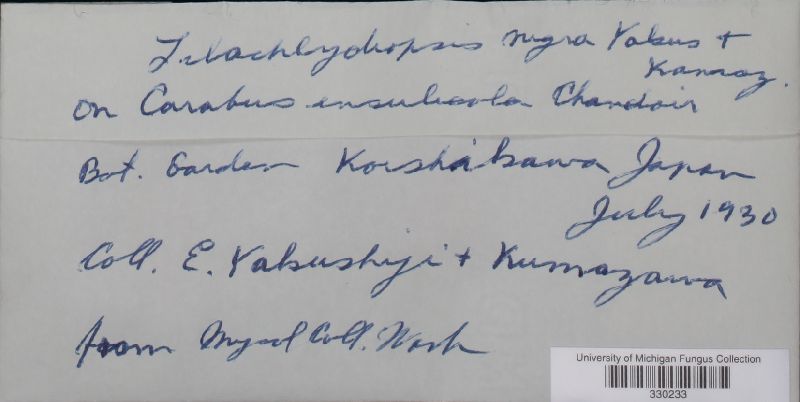 Tilachlydiopsis nigra Yakus +
Kumaz.
on Carabus insulicola Chandoir
Bot. Garden Koishikawa Japan
July 1930
Coll. E. Yakushiji + Kumazawa
from Mycol Coll. Wash
University of Michigan Fungus Collection
330233